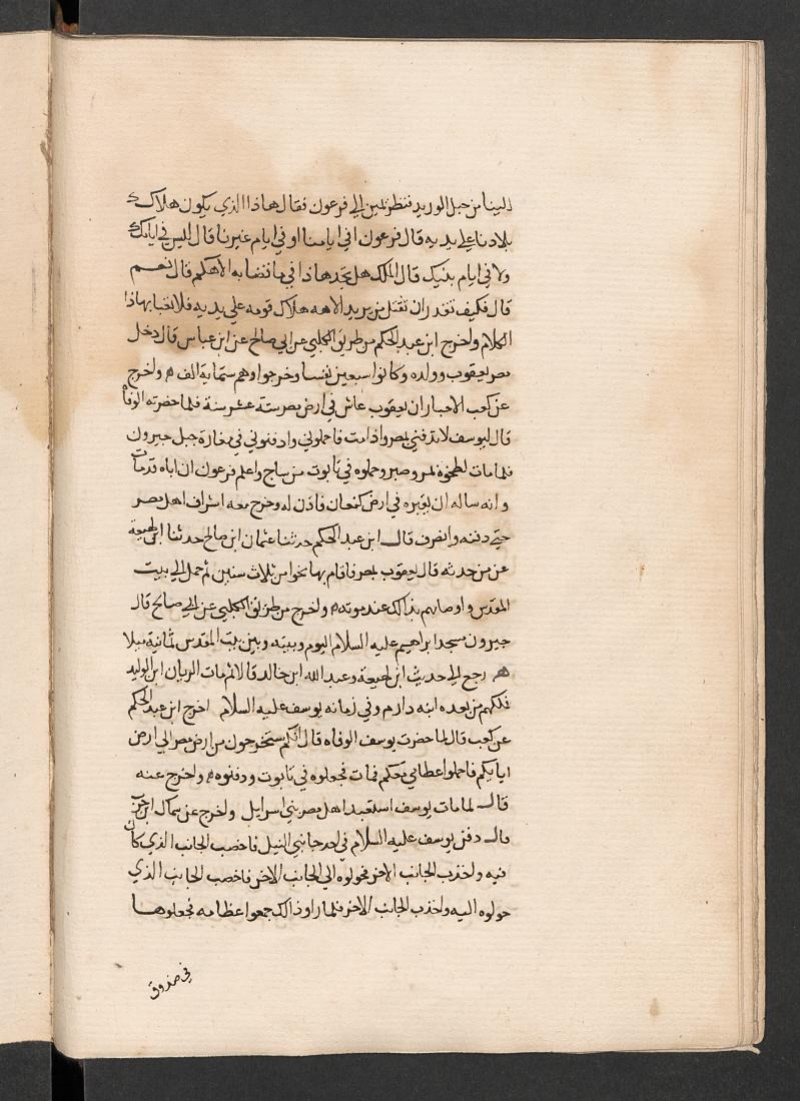 الينا من حبل الوريد فنظر نمين الي فرعون فقال هاذا الذي يكون هلاك
بلادنا علي يديه قال فرعون افي ايامنا او في ايام غيرنا قال ليس في ايامك
ولا في ايام بنيك قال الملك هل تجد هاذا في ما قضا به الاهكم قال نعم
قال فكيف نقدر ان نقتل من يريد الاهه هلاك قومه علي يديه فلا نعبا بهاذا
الكلام واخرج ابن عبد الحكم من طريق الكلبي عن ابي صالح عن ابن عباس قال دخل
مصر يعقوب وولده وكانوا سبعين نفسا وخرجوا وهم ستماية الف م واخرج
عن كعب الاحبار ان يعقوب عاش في ارض مصر ستة عشر سنة فلما حضرته الوفاة
قال ليوسف لا تدفني بمصر واذا مت فاحملوني وادفنوني في مغارة جبل حبرون
فلما مات لطخوه بمر وصبر وحملوه في تابوت من ساج واعلم فرعون ان اباه قد مات
وانه ساله ان يقبره في ارض كنعان فاذن له وخرج معه اشراف اهل مصر
حتي دفنه وانصرف قال ابن عبد الحكم حدثنا عثمان ابن صالح حدثنا ابن لهيعة
عن من حدثه قال يعقوب بمصر فاقام بها نحوا من ثلاث سنين ثم حمل الي بيت
المقدس واوصاهم بذالك عند موته م واخرج من طريق الكلبي عن ابي صالح قال
حبرون مسجد ابراهيم عليه السلام اليوم وبينه وبين بيت المقدس ثمانية ميلا
هـ رجع الي حديث ابن لهيعة وعبد الله ابن خالد قالا ثم مات الريان ابن الوليد
فملكهم من بعده ابنه دارم وفي زمانه يوسف عليه السلام اخرج ابن عبد الحكم
عن كعب قال لما حضرت يوسف الوفاه قال انكم ستخرجون من ارض مصر الي ارض
ابايكم فاحملوا عظامي معكم فمات فجعلوه في تابوت ودفنوه م واخرج عنه
قال لمامات يوسف استعبد اهل مصر بني اسرايل واخرج عن سماك ابن حرب
قال دفن يوسف عليه السلام في احد جانبي النيل فاخصب الجانب الذي كان
فيه واجذب الجانب الاخر فحولوه الي الجانب الاخر فاخصب الجانب الذي
حولوه اليه واجذب الجانب الاخر فلما راوا ذالك جمعوا عظامه فجعلوها
في صندوق